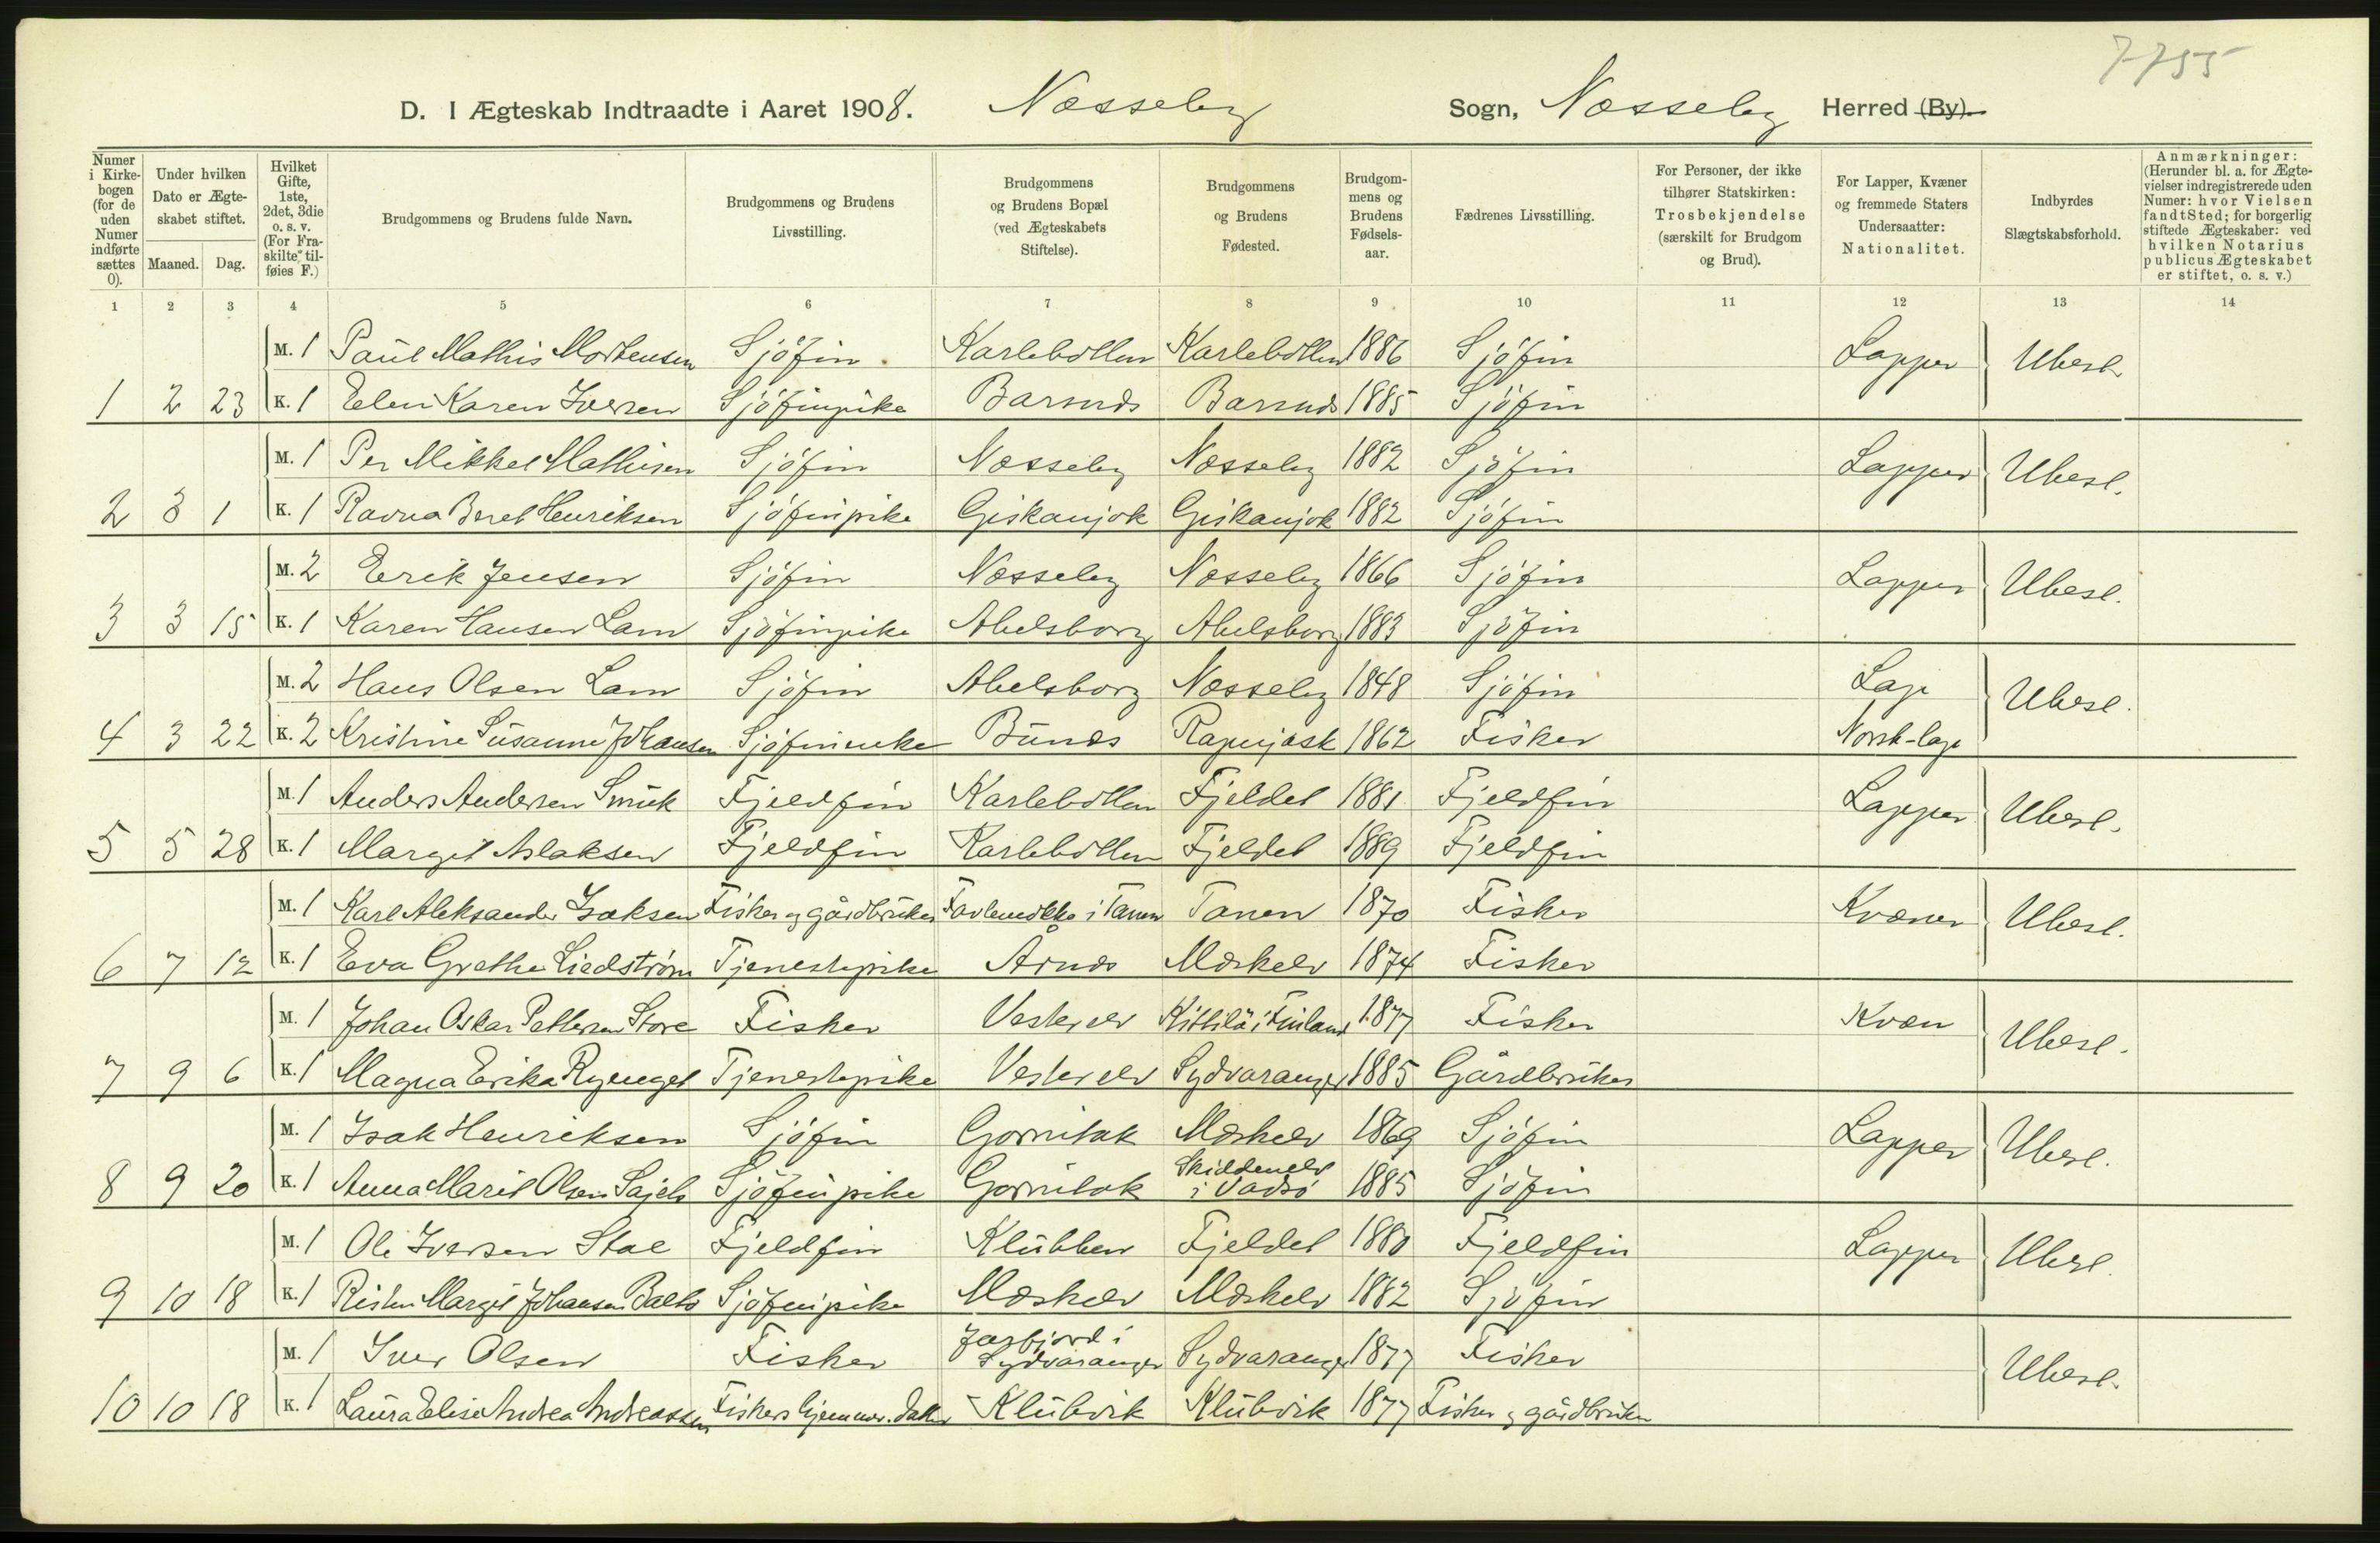 7755
D. I Ægteskab Indtraadte i Aaret 1908. Næsseby Sogn, Næsseby Herred (By).
Numer i Kirkebogen (for de uden Numer indførte sættes 0).
Under hvilken Dato er Ægteskabet stiftet.
Maaned. Dag.
Hvilket Gifte, 1ste, 2det, 3die o. s. v. (For Fraskilte tilføies F.)
Brudgommens og Brudens fulde Navn.
Brudgommens og Brudens Livsstilling.
Brudgommens og Brudens Bopæl (ved Ægteskabets Stiftelse).
Brudgommens og Brudens Fødested.
Brudgommens og Brudens Fødselsaar.
Fædrenes Livsstilling.
For Personer, der ikke tilhører Statskirken: Trosbekjendelse (særskilt for Brudgom og Brud).
For Lapper, Kvæner og fremmede Staters Undersaatter: Nationalitet.
Indbyrdes Slægtskabsforhold.
Anmærkninger: (Herunder bl. a. for Ægtevielser indregistrerede uden Numer: hvor Vielsen fandt Sted; for borgerlig stiftede Ægteskaber: ved hvilken Notarius publicus Ægteskabet er stiftet, o. s. v.)
1 2 3 4 5 6 7 8 9 10 11 12 13 14
M. 1 Paul Mathis Mortensen Sjöfin Karlebotten Karlebotten 1886 Sjöfin Lapper Ubesl.
1 2 23 K. 1 Elen Karen Iversen Sjöfinpike Barsnæs Barsnæs 1885 Sjöfin
M. 1 Per Mikkel Mathisen Sjöfin Næsseby Næsseby 1882 Sjöfin Lapper Ubesl.
2 3 1 K. 1 Ravna Beret Henriksen Sjöfinpike Giskanjok Giskanjok 1882 Sjöfin
M. 2 Erik Jensen Sjöfin Næsseby Næsseby 1866 Sjöfin Lapper Ubesl.
3 3 15 K. 1 Karen Hansen Lam Sjöfinpike Abelsborg Abelsborg 1883 Sjöfin
M. 2 Hans Olsen Lam Sjöfin Abelsborg Næsseby 1848 Sjöfin Lap Ubesl.
4 3 22 K. 2 Kristine Susanne Johansen Sjöfinenke Bunæs 1862 Fisker Norsk-lap
M. 1 Anders Andersen Smuk Fjeldfin Karlebotten Fjeldet 1881 Fjeldfin Lapper Ubesl.
5 5 28 K. 1 Margit Aslaksen Fjeldfin Karlebotten Fjeldet 1889 Fjeldfin
M. 1 Karl Aleksander Isaksen Fisker og gårdbruker i Tanen Tanen 1870 Fisker Kvæner Ubesl.
6 7 12 K. 1 Eva Grethe Liedström Tjenestepike Årnæs Mæskelv 1874 Fisker
M. 1 Johan Oskar Pettersen Store Fisker Vesterelv Kittilä i Finland 1877 Fisker Kvæn Ubesl.
7 9 6 K. 1 Magna Erika Rynget Tjenestepike Vesterelv Sydvaranger 1885 Gårdbruker
M. 1 Isak Henriksen Sjöfin Gornitak Mæskelv 1869 Sjöfin Lapper Ubesl.
8 9 20 K. 1 Anna Marit Olsen Sajets Sjöfinpike Gornitak Skiddenelv i Vadsö 1885 Sjöfin
M. 1 Ole Iversen Stal Fjeldfin Klubben Fjeldet 1880 Fjeldfin Lapper Ubesl.
9 10 18 K. 1 Risten Margit Johansen Balto Sjöfinpike Mæskelv Mæskelv 1882 Sjöfin
M. 1 Iver Olsen Fisker Jarfjord i Sydvaranger Sydvaranger 1877 Fisker Ubesl.
10 10 18 K. 1 Laura Elise Andrea Andreassen Fiskers hjemmev. datter Klubvik Klubvik 1877 Fisker og gårdbruker